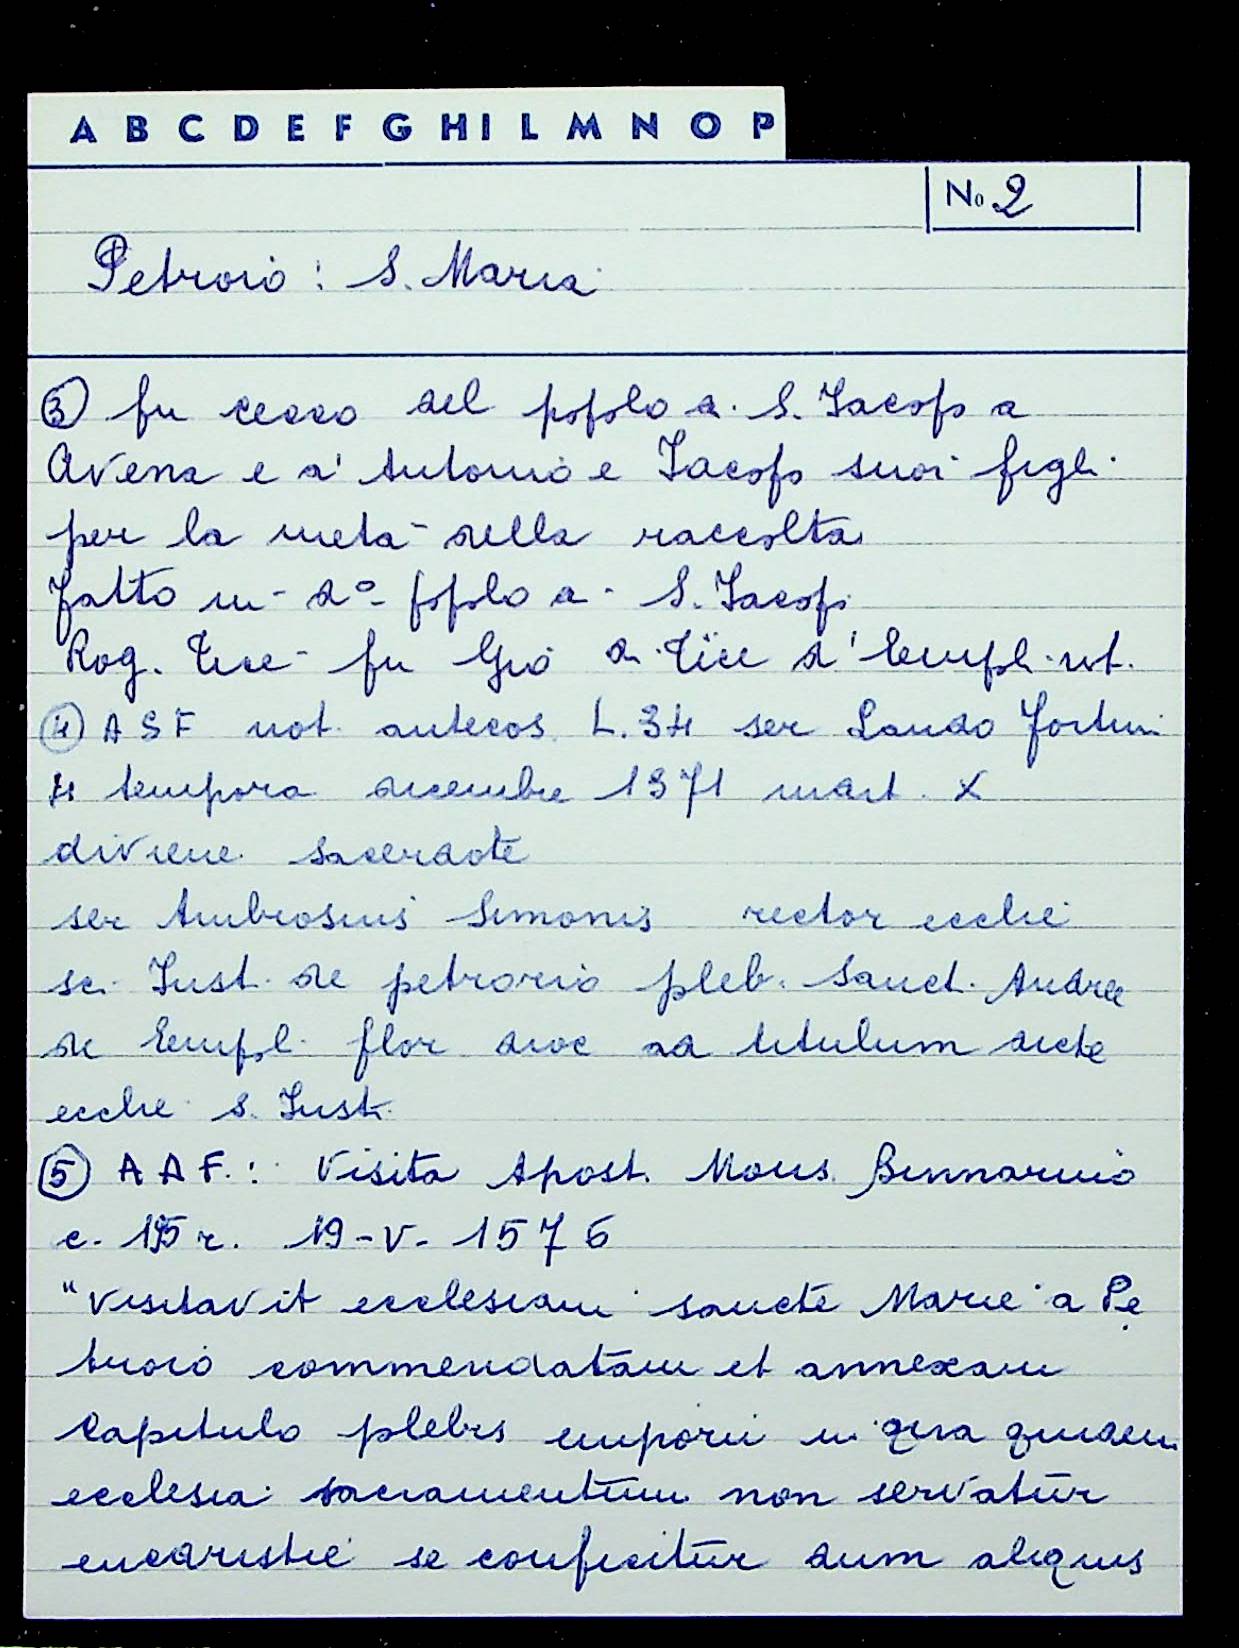 A B C D E F G H I L M N O P
No 2
Petroio : S. Maria
③ fu cecco del popolo d. S. Jacopo a
Avena e d' Antonio e Jacopo suoi figli
per la metà della raccolta
fatto in do popolo d. S. Jacopo
Rog. fu Gio di d' Empoli not.
④ ASF not. antecos. L. 34 ser Lando Fortini
4 tempora dicembre 1371 ind. X
diviene sacerdote
ser Ambrosius Simonis rector ecclie
sci Just. de petrorio pleb. Sanct. Andree
de Empol. flor dioc ad titulum dicte
ecclie s. Just.
⑤ A A F. : Visita Apost. Mons. Binnarino
c. r. 19-V-1576
"visitavit ecclesiam sancte Marie a Pe
troio commendatam et annexam
Capitulo plebis emporii in qua quidem
ecclesia sacramentum non servatur
eucaristie se conficitur dum aliquis